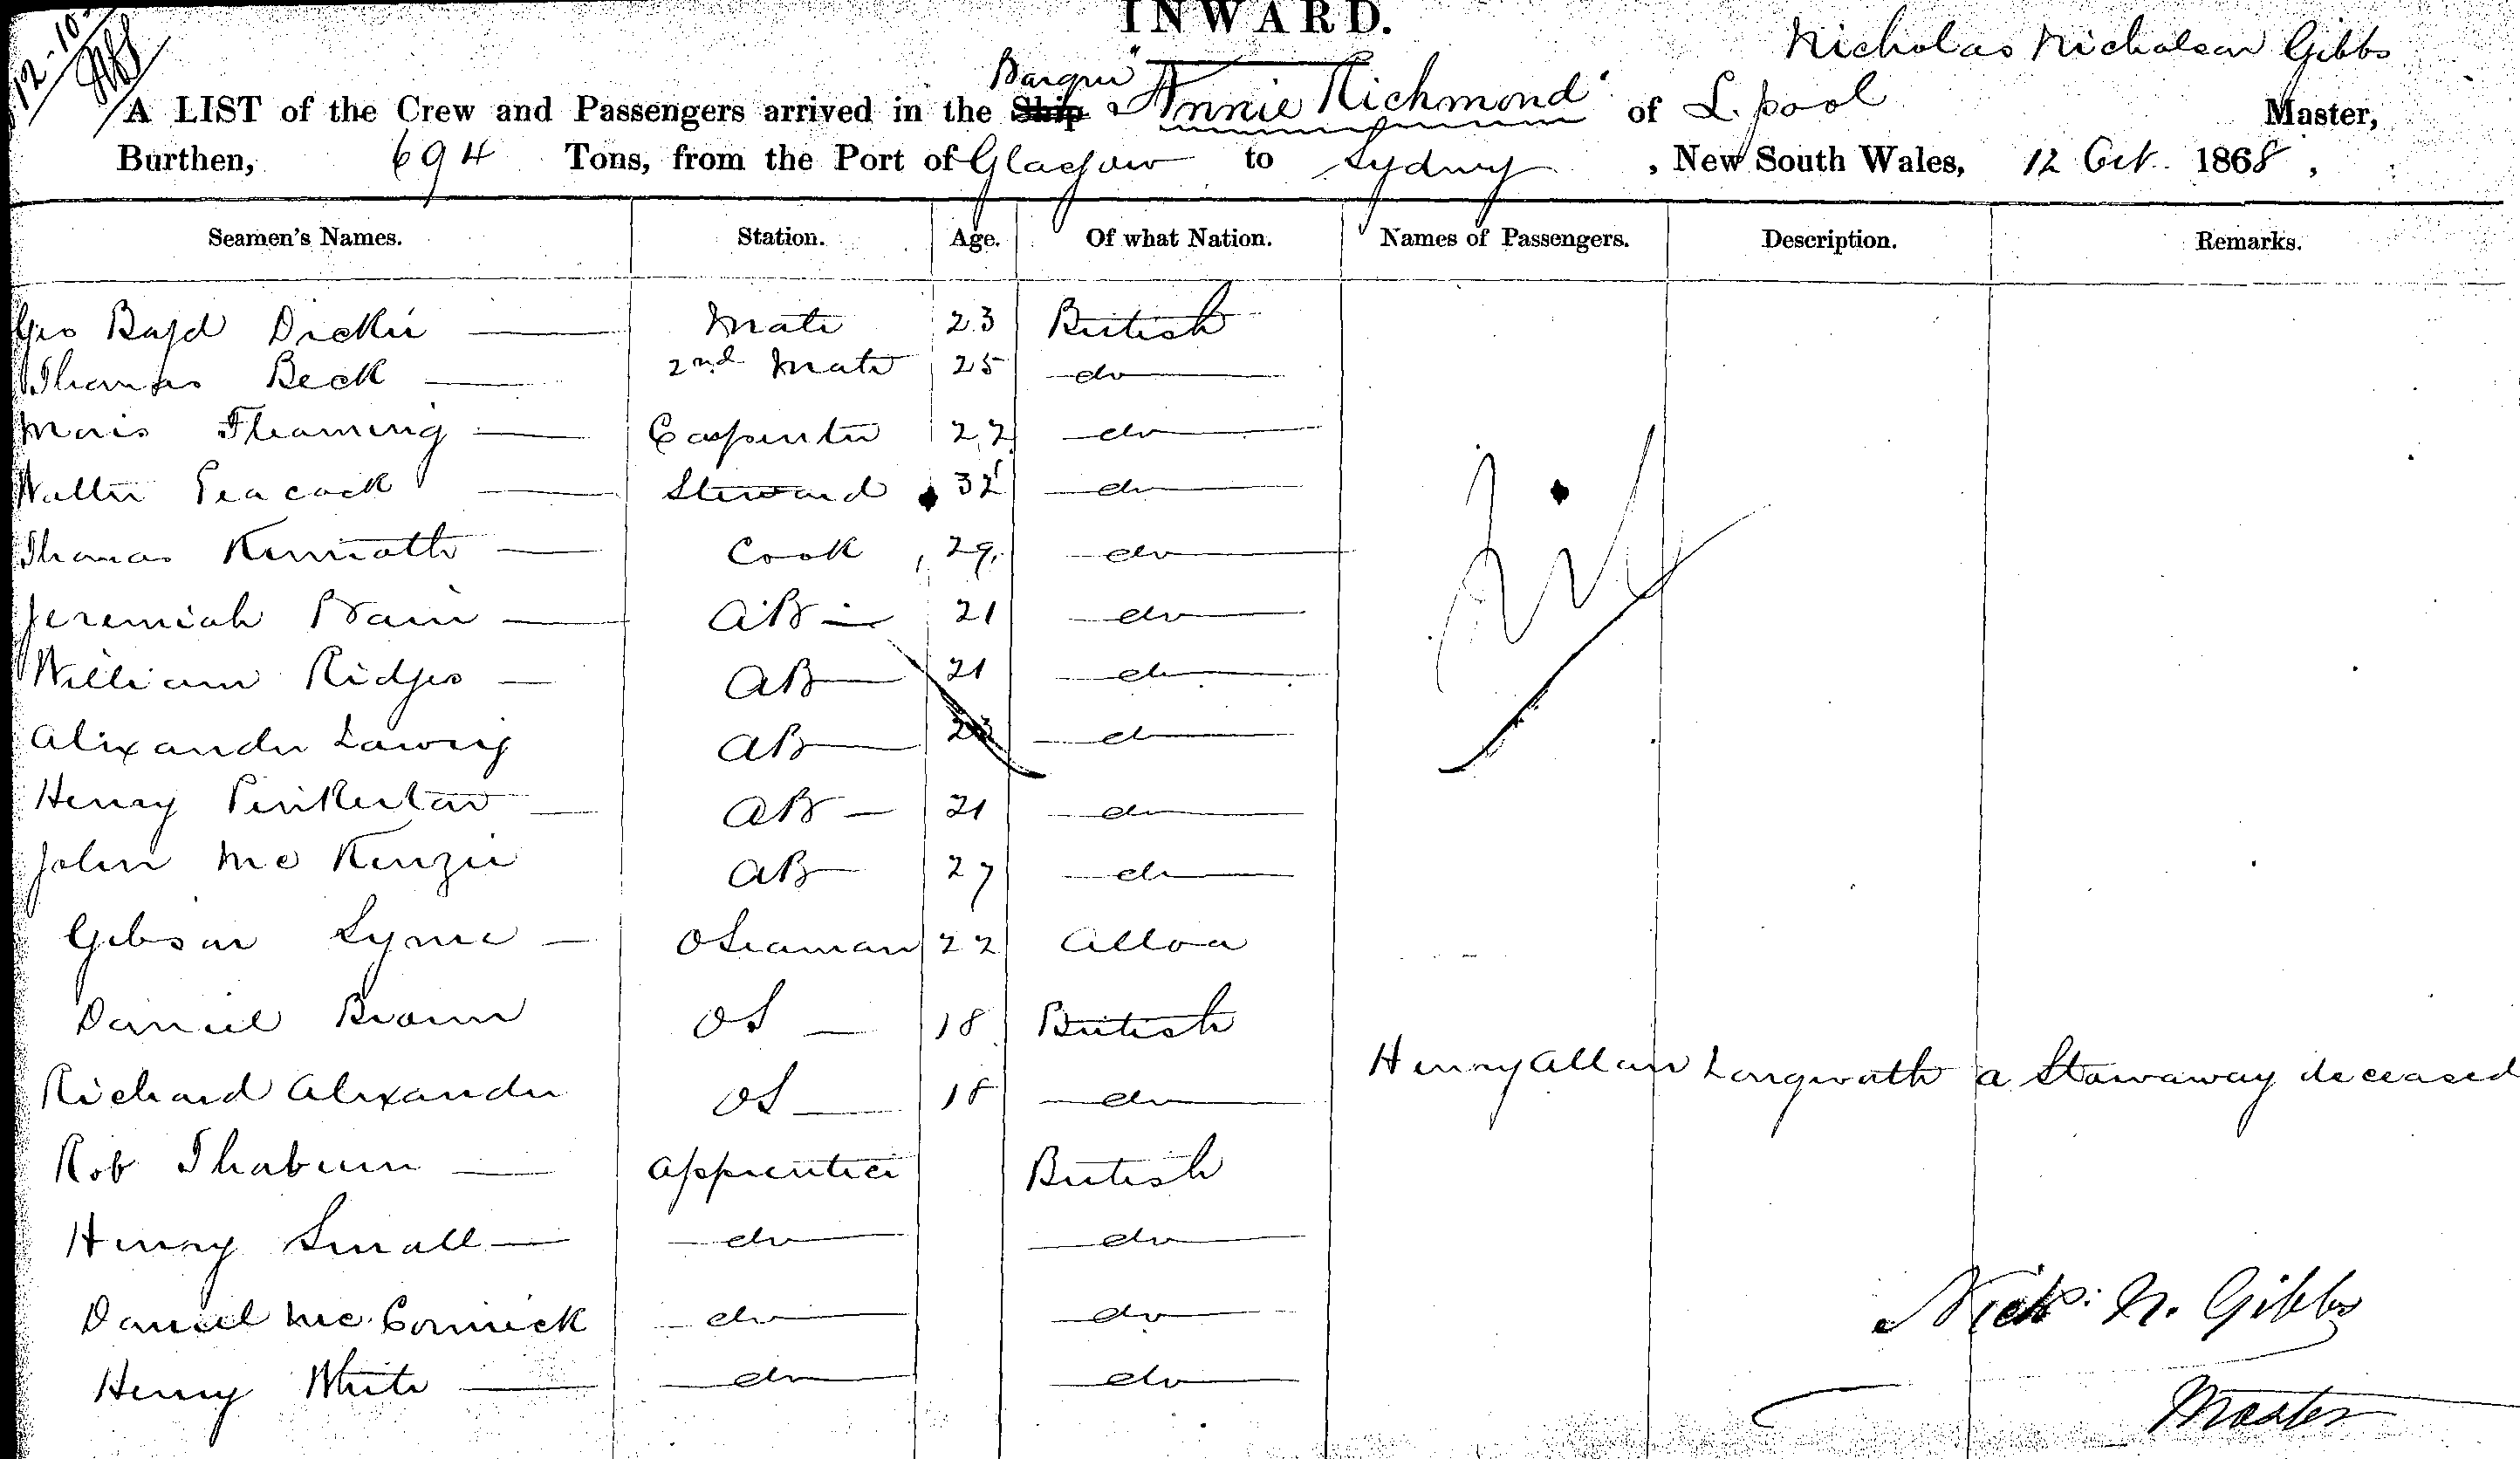 12-10
INWARD.
Nicholas Nicholson Gibbs
Barque
A LIST of the Crew and Passengers arrived in the Ship "Annie Richmond" of L.pool Master,
Burthen, 694 Tons, from the Port of Glasgow to Sydney, New South Wales, 12 Oct. 1868,
Seamen's Names. Station. Age. Of what Nation. Names of Passengers. Description. Remarks.
Geo Boyd Dickie Mate 23 British
Thomas Beck 2nd Mate 25 do
Moris Fleaming Carpenter 22 do
Walter Peacock Steward 32 do
Thomas Cook 29 do
Nil
Jeremiah Bain AB 21 do
William Ridges AB 21 do
Alixander Lawrig AB 23 do
Henry Pinkerton AB 21 do
John McKenzie AB 27 do
Gibson Syme O Seaman 22 Alloa
Daniel Brown OS 18 British
Richard Alexander OS 18 do Henry Allan Longworth a Stowaway deceased
Rob Thoburn Apprentice British
Henry Small do do
Daniel McCormick do do
Nichs: N. Gibbs
Henry White do do
Master